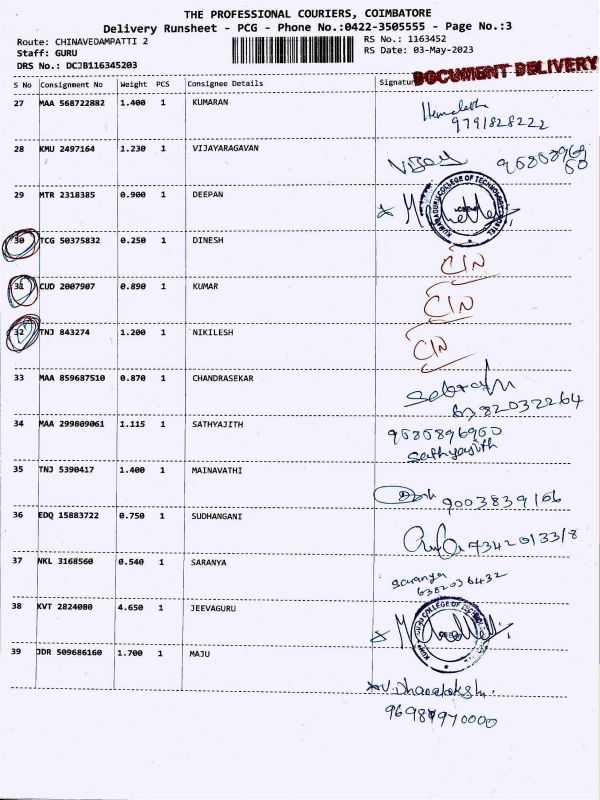 THE PROFESSIONAL COURIERS, COIMBATORE
Delivery Runsheet - PCG - Phone No.:0422-3505555 - Page No.:3
Route: CHINAVEDAMPATTI 2
RS No.: 1163452
Staff: GURU
RS Date: 03-May-2023
DRS No.: DCJB116345203
DOCUMENT DELIVERY
S No Consignment No Weight PCS Consignee Details Signatur
27 MAA 568722882 1.400 1 KUMARAN
Hemalatha
9791828222
28 KMU 2497164 1.230 1 VIJAYARAGAVAN
Vijay
29 MTR 2318385 0.900 1 DEEPAN
KUMARAGURU COLLEGE OF TECHNOLOGY
30 TCG 50375832 0.250 1 DINESH
CIN
31 CUD 2007907 0.890 1 KUMAR
CIN
32 TNJ 843274 1.200 1 NIKILESH
CIN
33 MAA 859687510 0.870 1 CHANDRASEKAR
34 MAA 299809061 1.115 1 SATHYAJITH
Sathyajith
35 TNJ 5390417 1.400 1 MAINAVATHI
9003839166
36 EDQ 15883722 0.750 1 SUDHANGANI
37 NKL 3168560 0.540 1 SARANYA
Saranya
6382036432
38 KVT 2824080 4.650 1 JEEVAGURU
39 JDR 509686160 1.700 1 MAJU
V. Dhanalakshmi